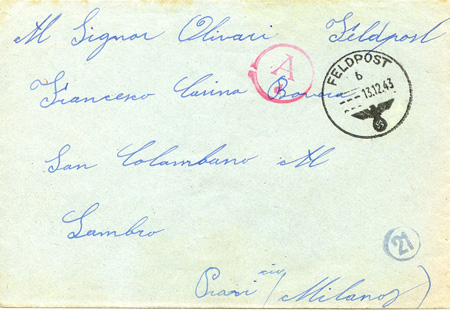 Al Signor Olivari Feldpost
Francesco Carina Bovera
San Colombano Al
Lambro
(Milano)
A
FELDPOST
b
13.12.43
21